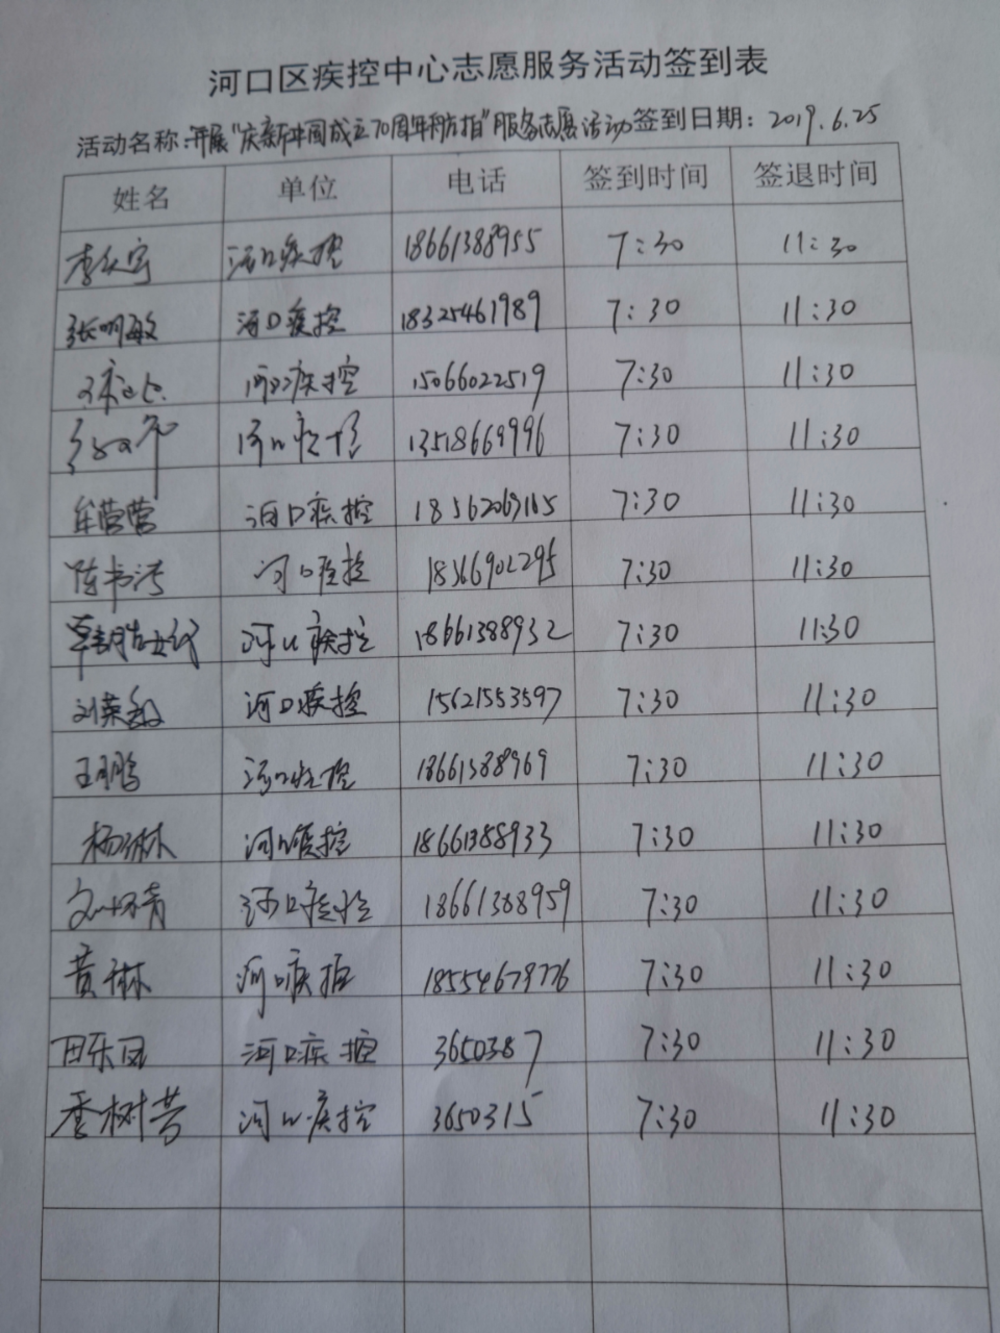 河口区疾控中心志愿服务活动签到表
活动名称:开展"庆新中国成立70周年 "服务志愿活动 签到日期：2019.6.25
姓名 单位 电话 签到时间 签退时间
河口疾控 18661388955 7:30 11:30
张明敏 河口疾控 18325461989 7:30 11:30
河口疾控 15066022519 7:30 11:30
河口疾控 13518669996 7:30 11:30
牟营营 河口疾控 18562063165 7:30 11:30
陈书涛 河口疾控 18366902295 7:30 11:30
河口疾控 18661388932 7:30 11:30
河口疾控 15621553597 7:30 11:30
王鹏 河口疾控 18661388969 7:30 11:30
杨琳 河口疾控 18661388933 7:30 11:30
河口疾控 18661388959 7:30 11:30
黄琳 河口疾控 18554679776 7:30 11:30
田乐园 河口疾控 3650387 7:30 11:30
季树芳 河口疾控 3650315 7:30 11:30